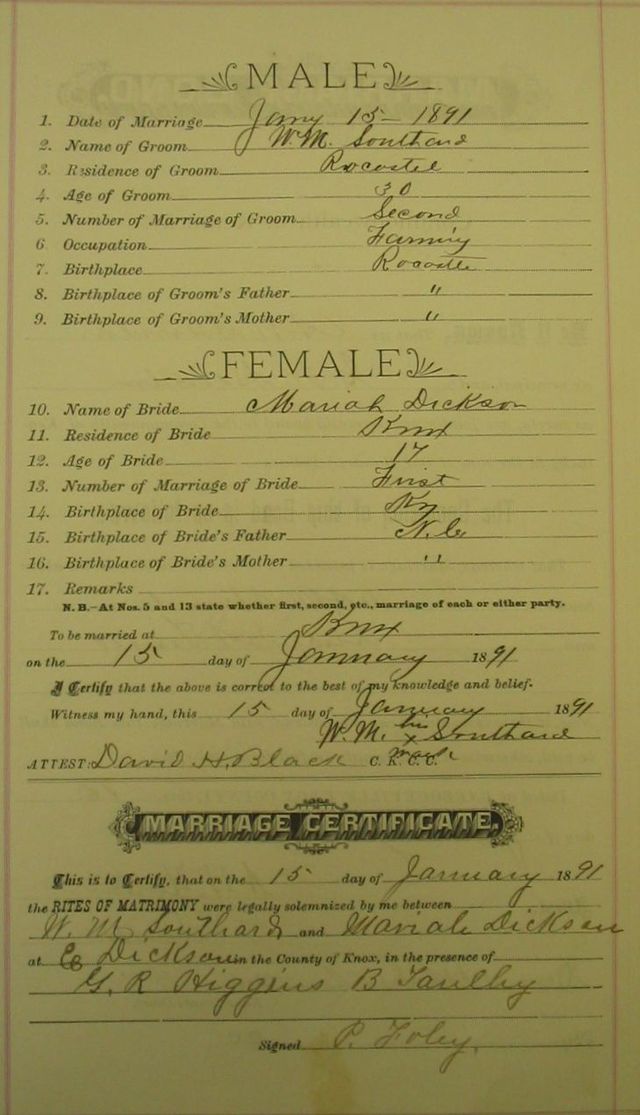 MALE
1. Date of Marriage Jany 15 - 1891
2. Name of Groom W. M. Southard
3. Residence of Groom
4. Age of Groom 30
5. Number of Marriage of Groom Second
6 Occupation Farming
7. Birthplace
8. Birthplace of Groom's Father "
9. Birthplace of Groom's Mother "
FEMALE
10. Name of Bride Mariah Dickson
11. Residence of Bride Knox
12. Age of Bride 17
13. Number of Marriage of Bride First
14. Birthplace of Bride Ky
15. Birthplace of Bride's Father N.C
16. Birthplace of Bride's Mother "
17. Remarks
N. B.—At Nos. 5 and 13 state whether first, second, etc., marriage of each or either party.
To be married at Knox
on the 15 day of January 1891
I Certify that the above is correct to the best of my knowledge and belief.
Witness my hand, this 15 day of January 1891
W. M. his x mark Southard
ATTEST: David H. Black C. K. C. C.
MARRIAGE CERTIFICATE.
This is to Certify, that on the 15 day of January 1891
the RITES OF MATRIMONY were legally solemnized by me between
W. M Southard and Mariah Dickson
at Dickson in the County of Knox, in the presence of
G. R Higgins B
Signed P. Foley.